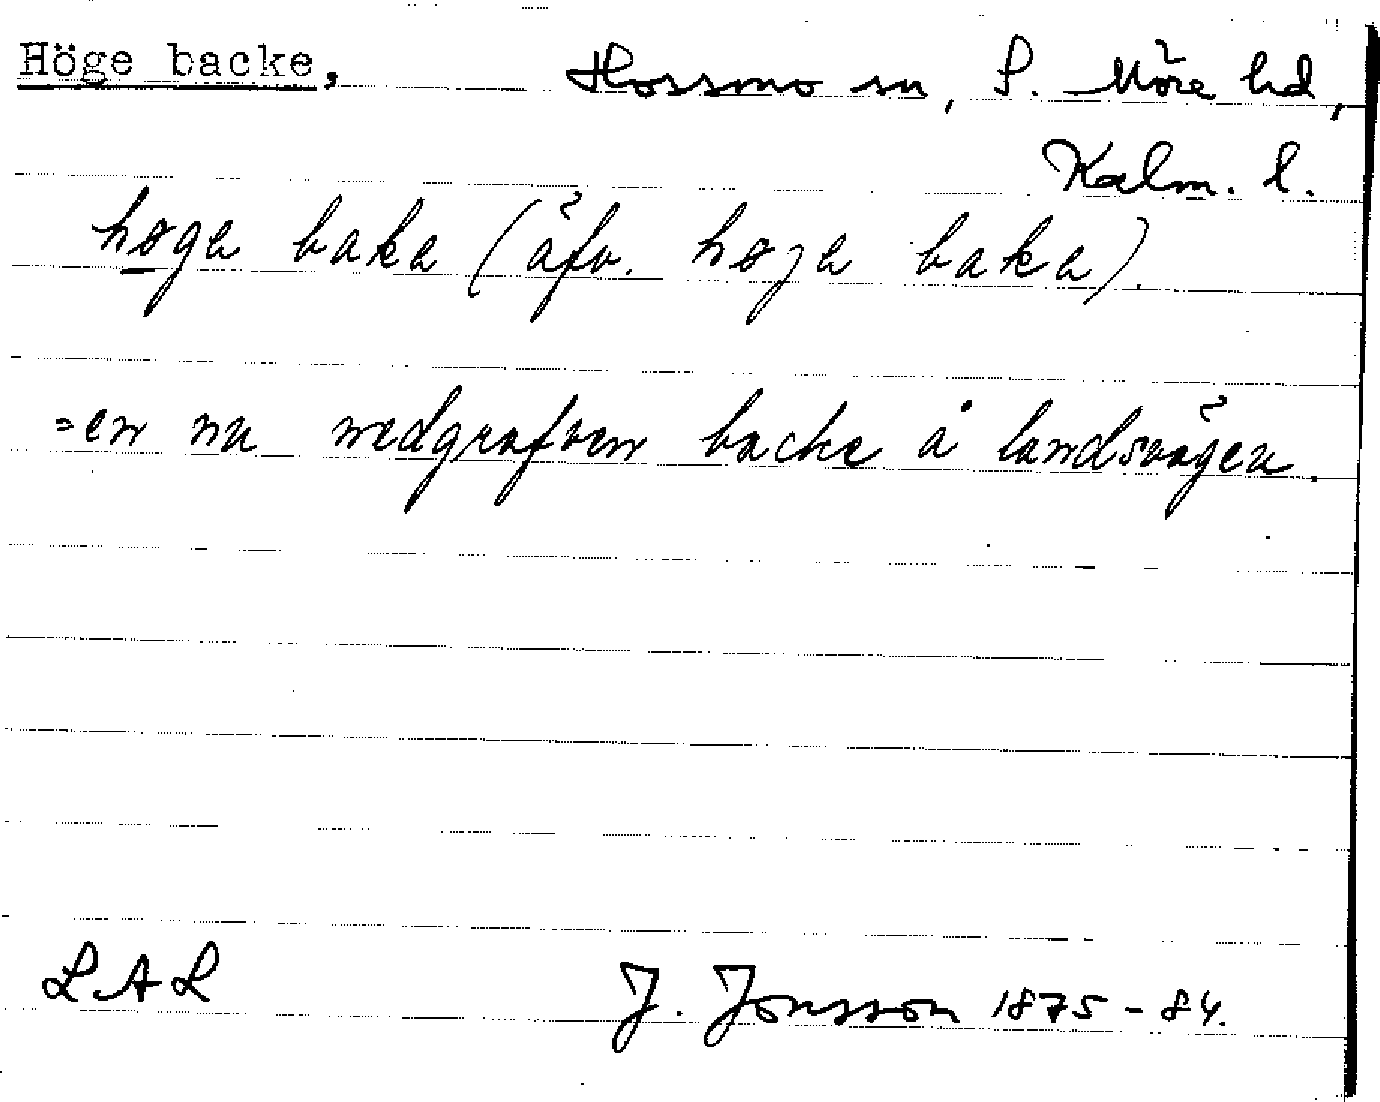 Höge backe, Hossmo sn, S. Möre hd,
Kalm. l.
høge bake (äfv. høje bake).
=en nu nedgrafven backe å landsvägen.
LAL J. Jonsson 1875-84.